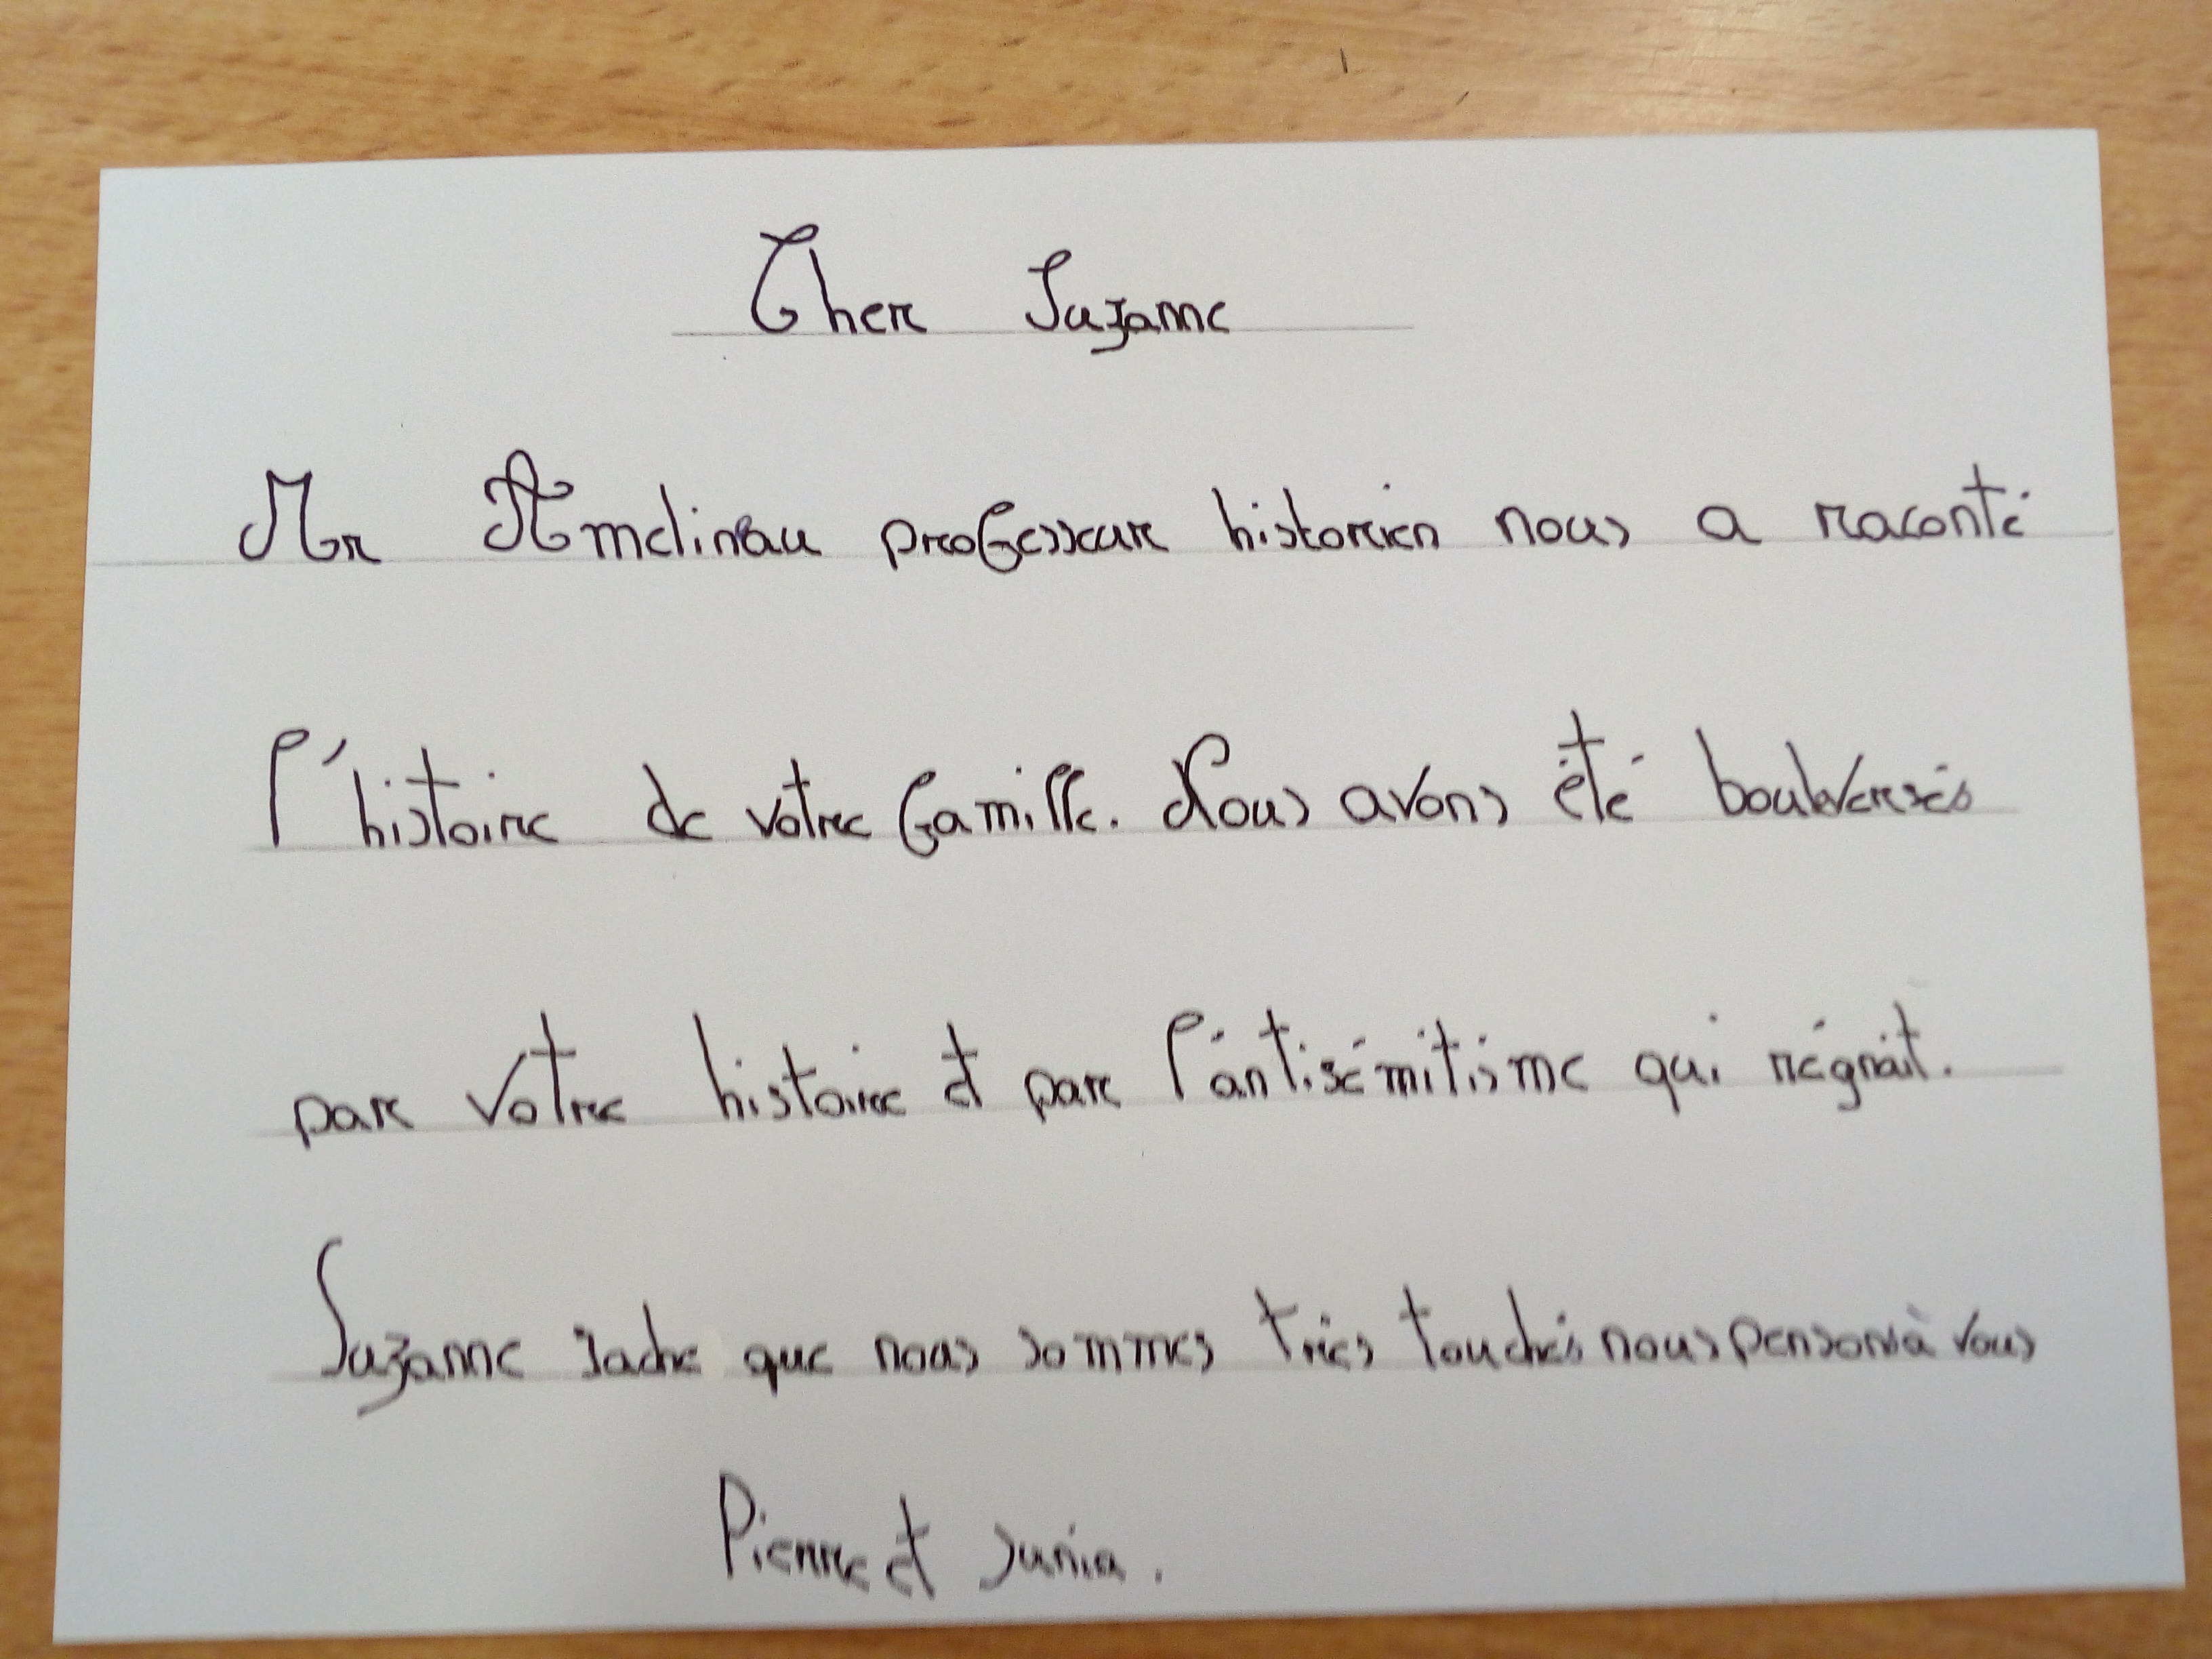 Cher Suzanne
Mr Amelineau professeur historien nous a raconté
l'histoire de votre famille. Nous avons été bouleversés
par votre histoire et par l'antisémitisme qui régnait.
Suzanne sache que nous sommes très touchés nous pensons à vous
Pierre et Junia.